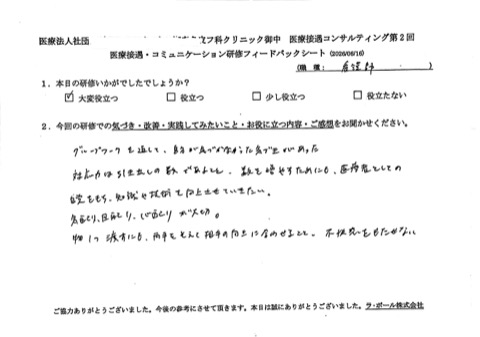 医療法人社団 科クリニック御中 医療接遇コンサルティング第2回
医療接遇・コミュニケーション研修フィードバックシート (2026/06/16)
(職 種: 看護師 )
1．本日の研修いかがでしたでしょうか？
☑ 大変役立つ □ 役立つ □ 少し役立つ □ 役立たない
2．今回の研修での気づき・改善・実践してみたいこと・お役に立つ内容・ご感想をお聞かせください。
グループワークを通して、自分が気づかなかった気づきがあった
対応力は引き出しの数であること、数を増やすためにも、医療者としての
自覚をもち、知識や技術を向上させていきたい。
気配り、目配り、心配りが大切。
物1つ渡すにも、両手をそえて相手の向きに合わせること。不快感をもたせない
ご協力ありがとうございました。今後の参考にさせて頂きます。本日は誠にありがとうございました。ラ・ポール株式会社